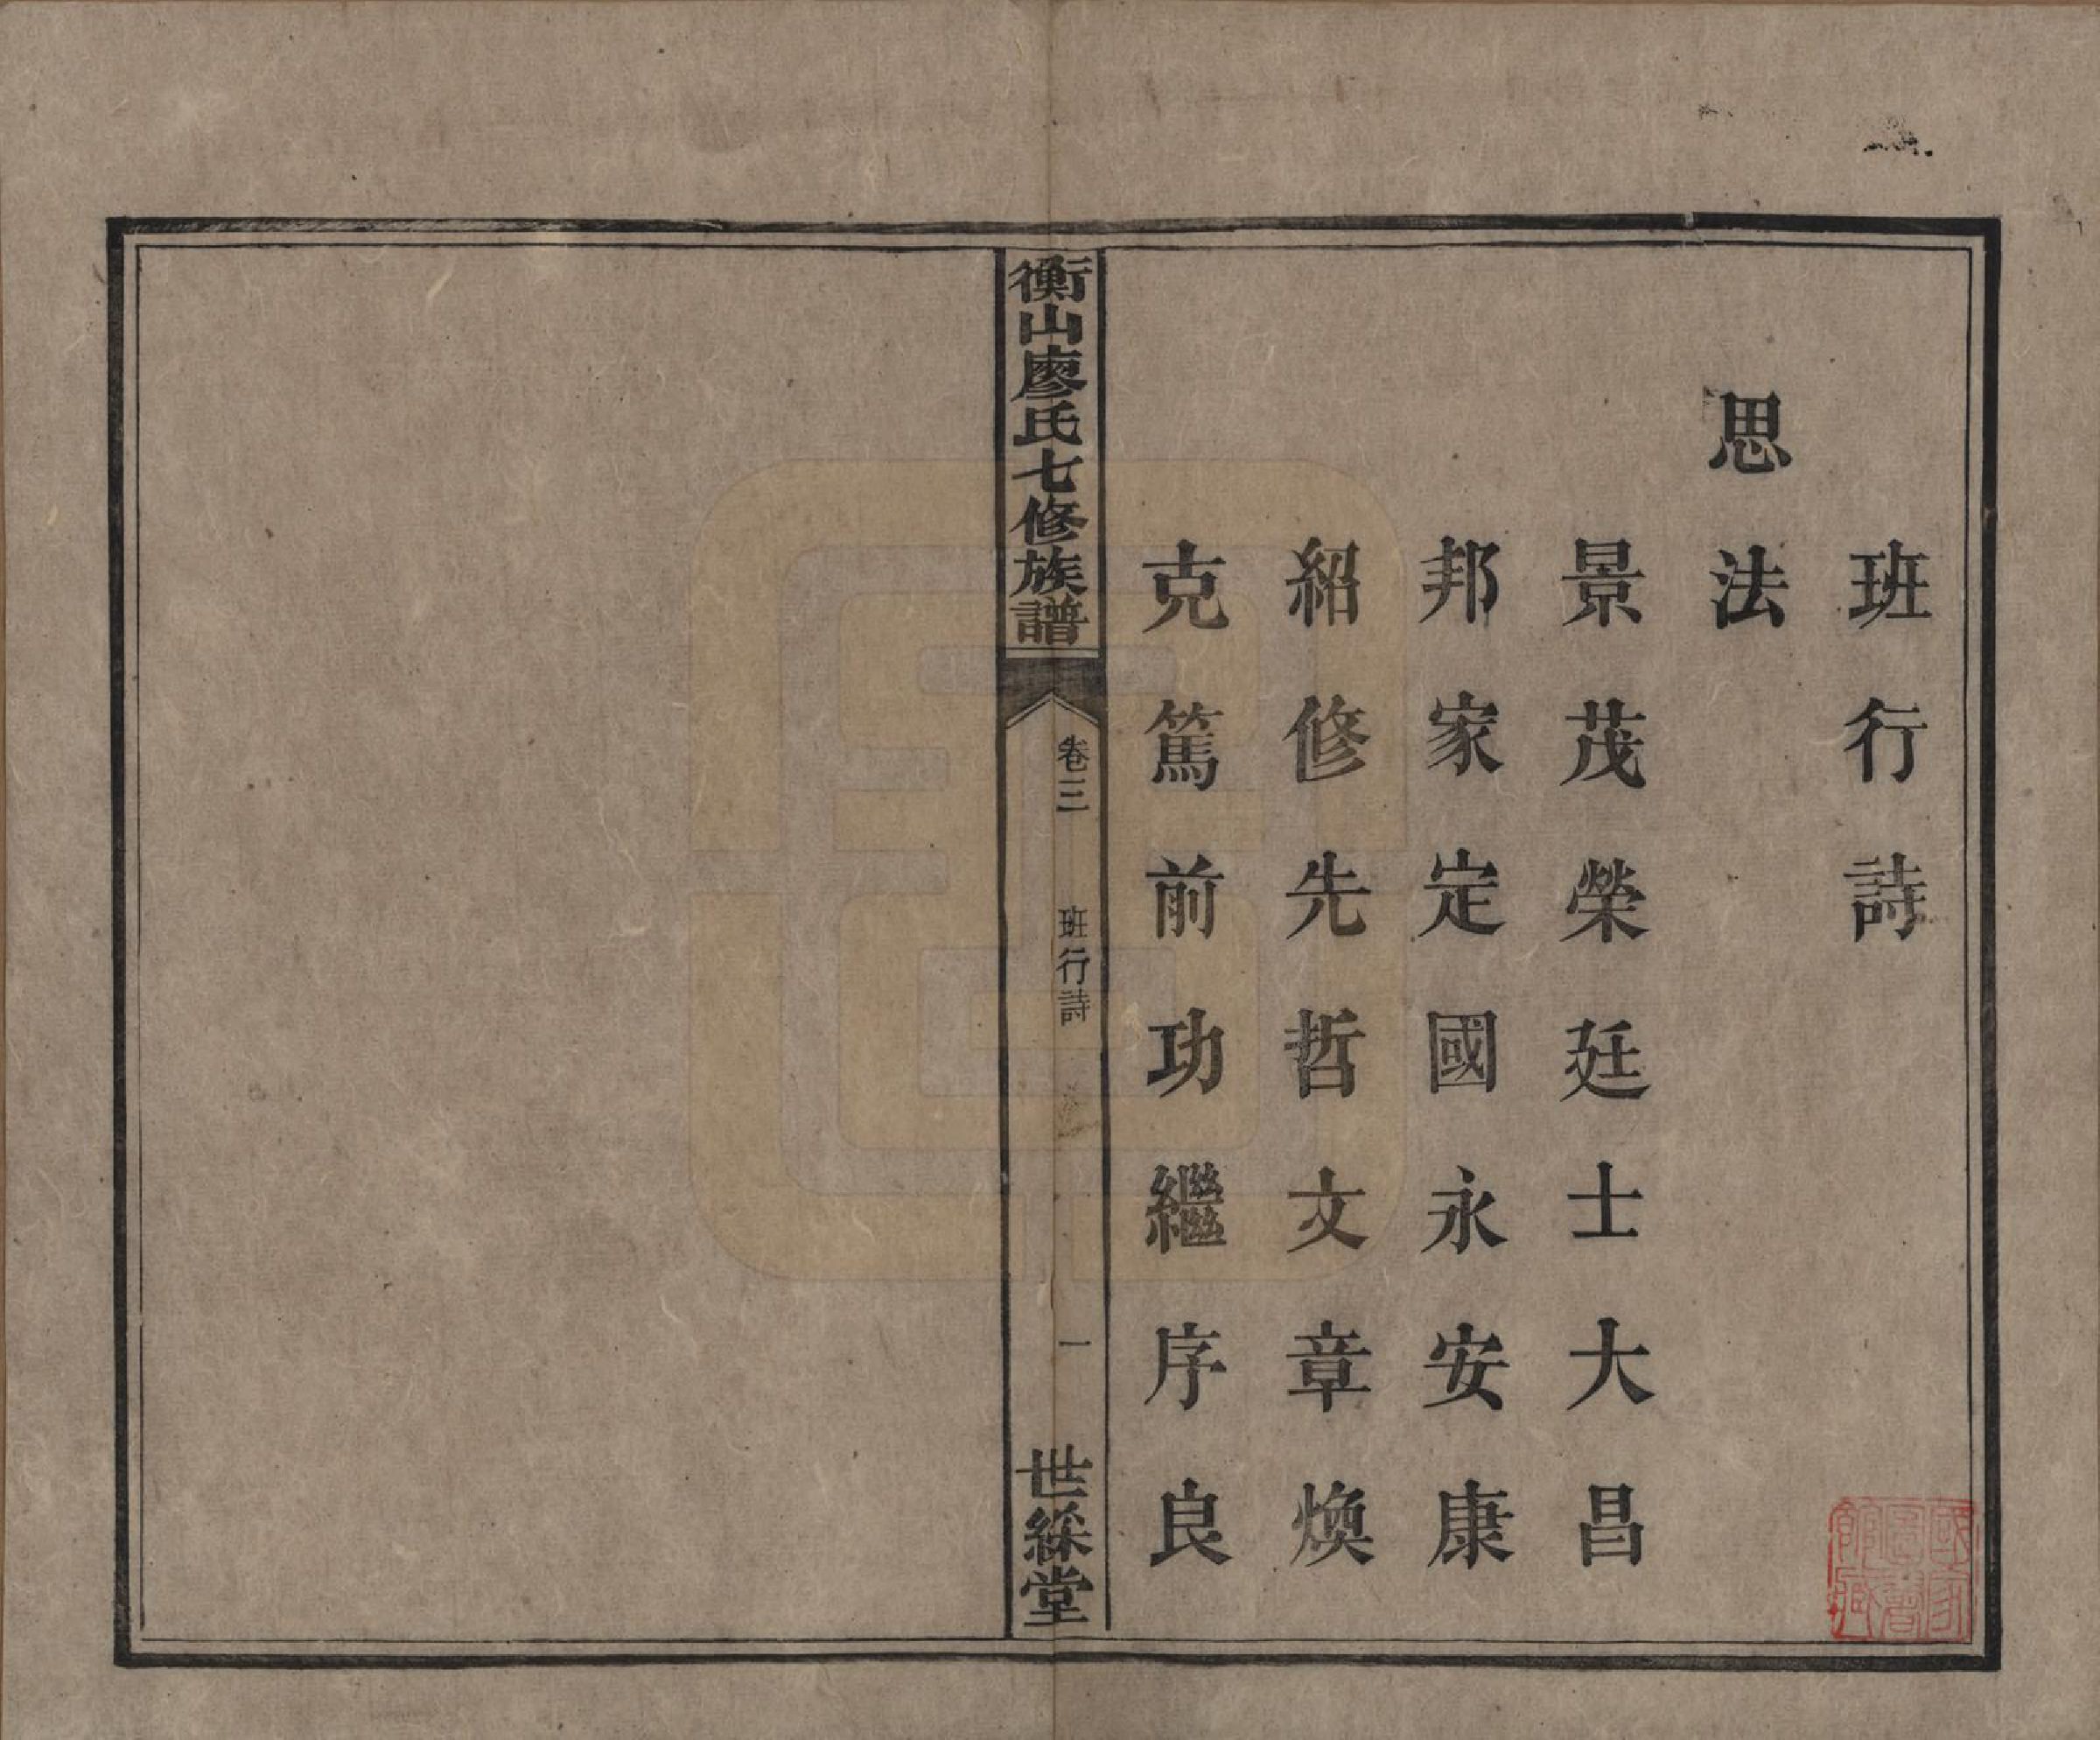 班行詩
思法
景茂榮廷士大昌
邦家定國永安康
紹修先哲文章煥
克篤前功繼序良
衡山廖氏七修族譜
卷三
班行詩
一
世綵堂
國家圖書館藏